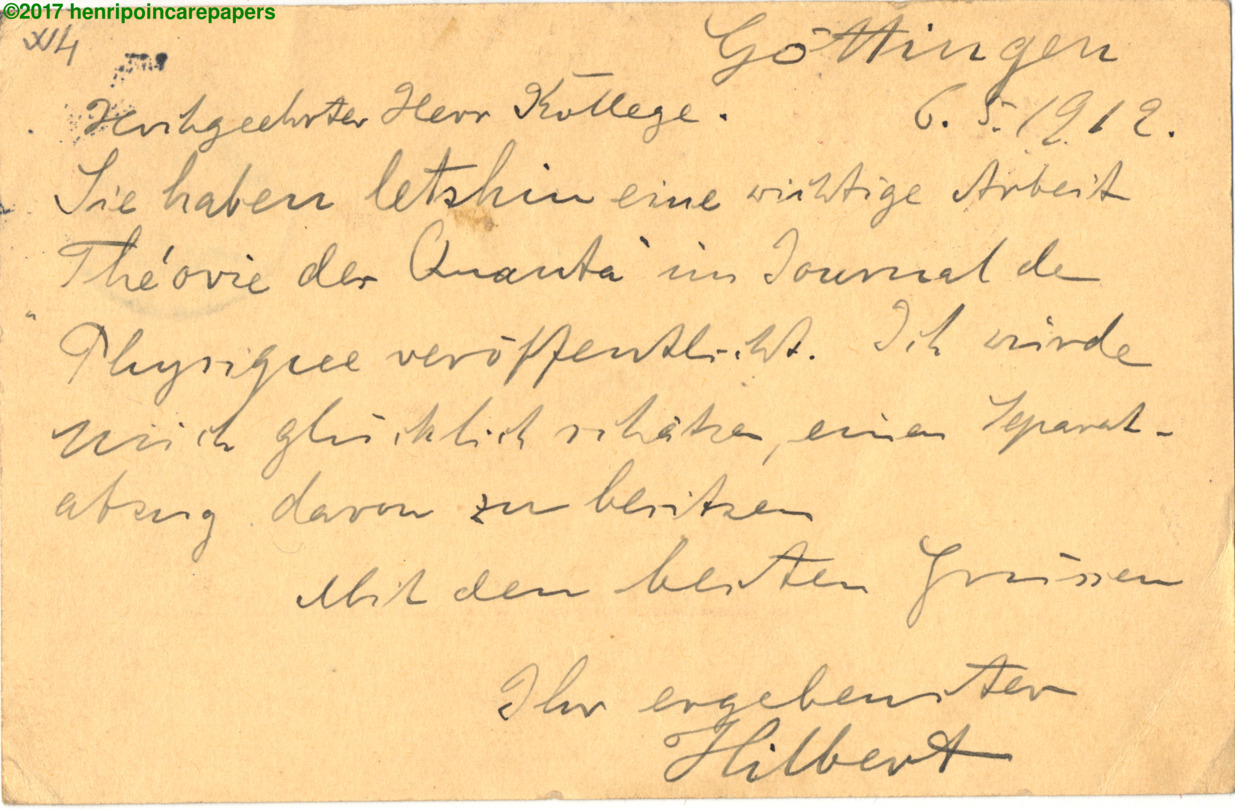 ©2017 henripoincarepapers
Göttingen
Hochgeehrter Herr Kollege.
6. 5. 1912.
Sie haben letzhin eine wichtige Arbeit
Théorie der Quanta im Journal de
"Physique veröffentlicht. Ich würde
mich glücklich schätzen, einen Separat-
abzug davon zu besitzen
Mit den besten Grüssen
Ihr ergebenster
Hilbert